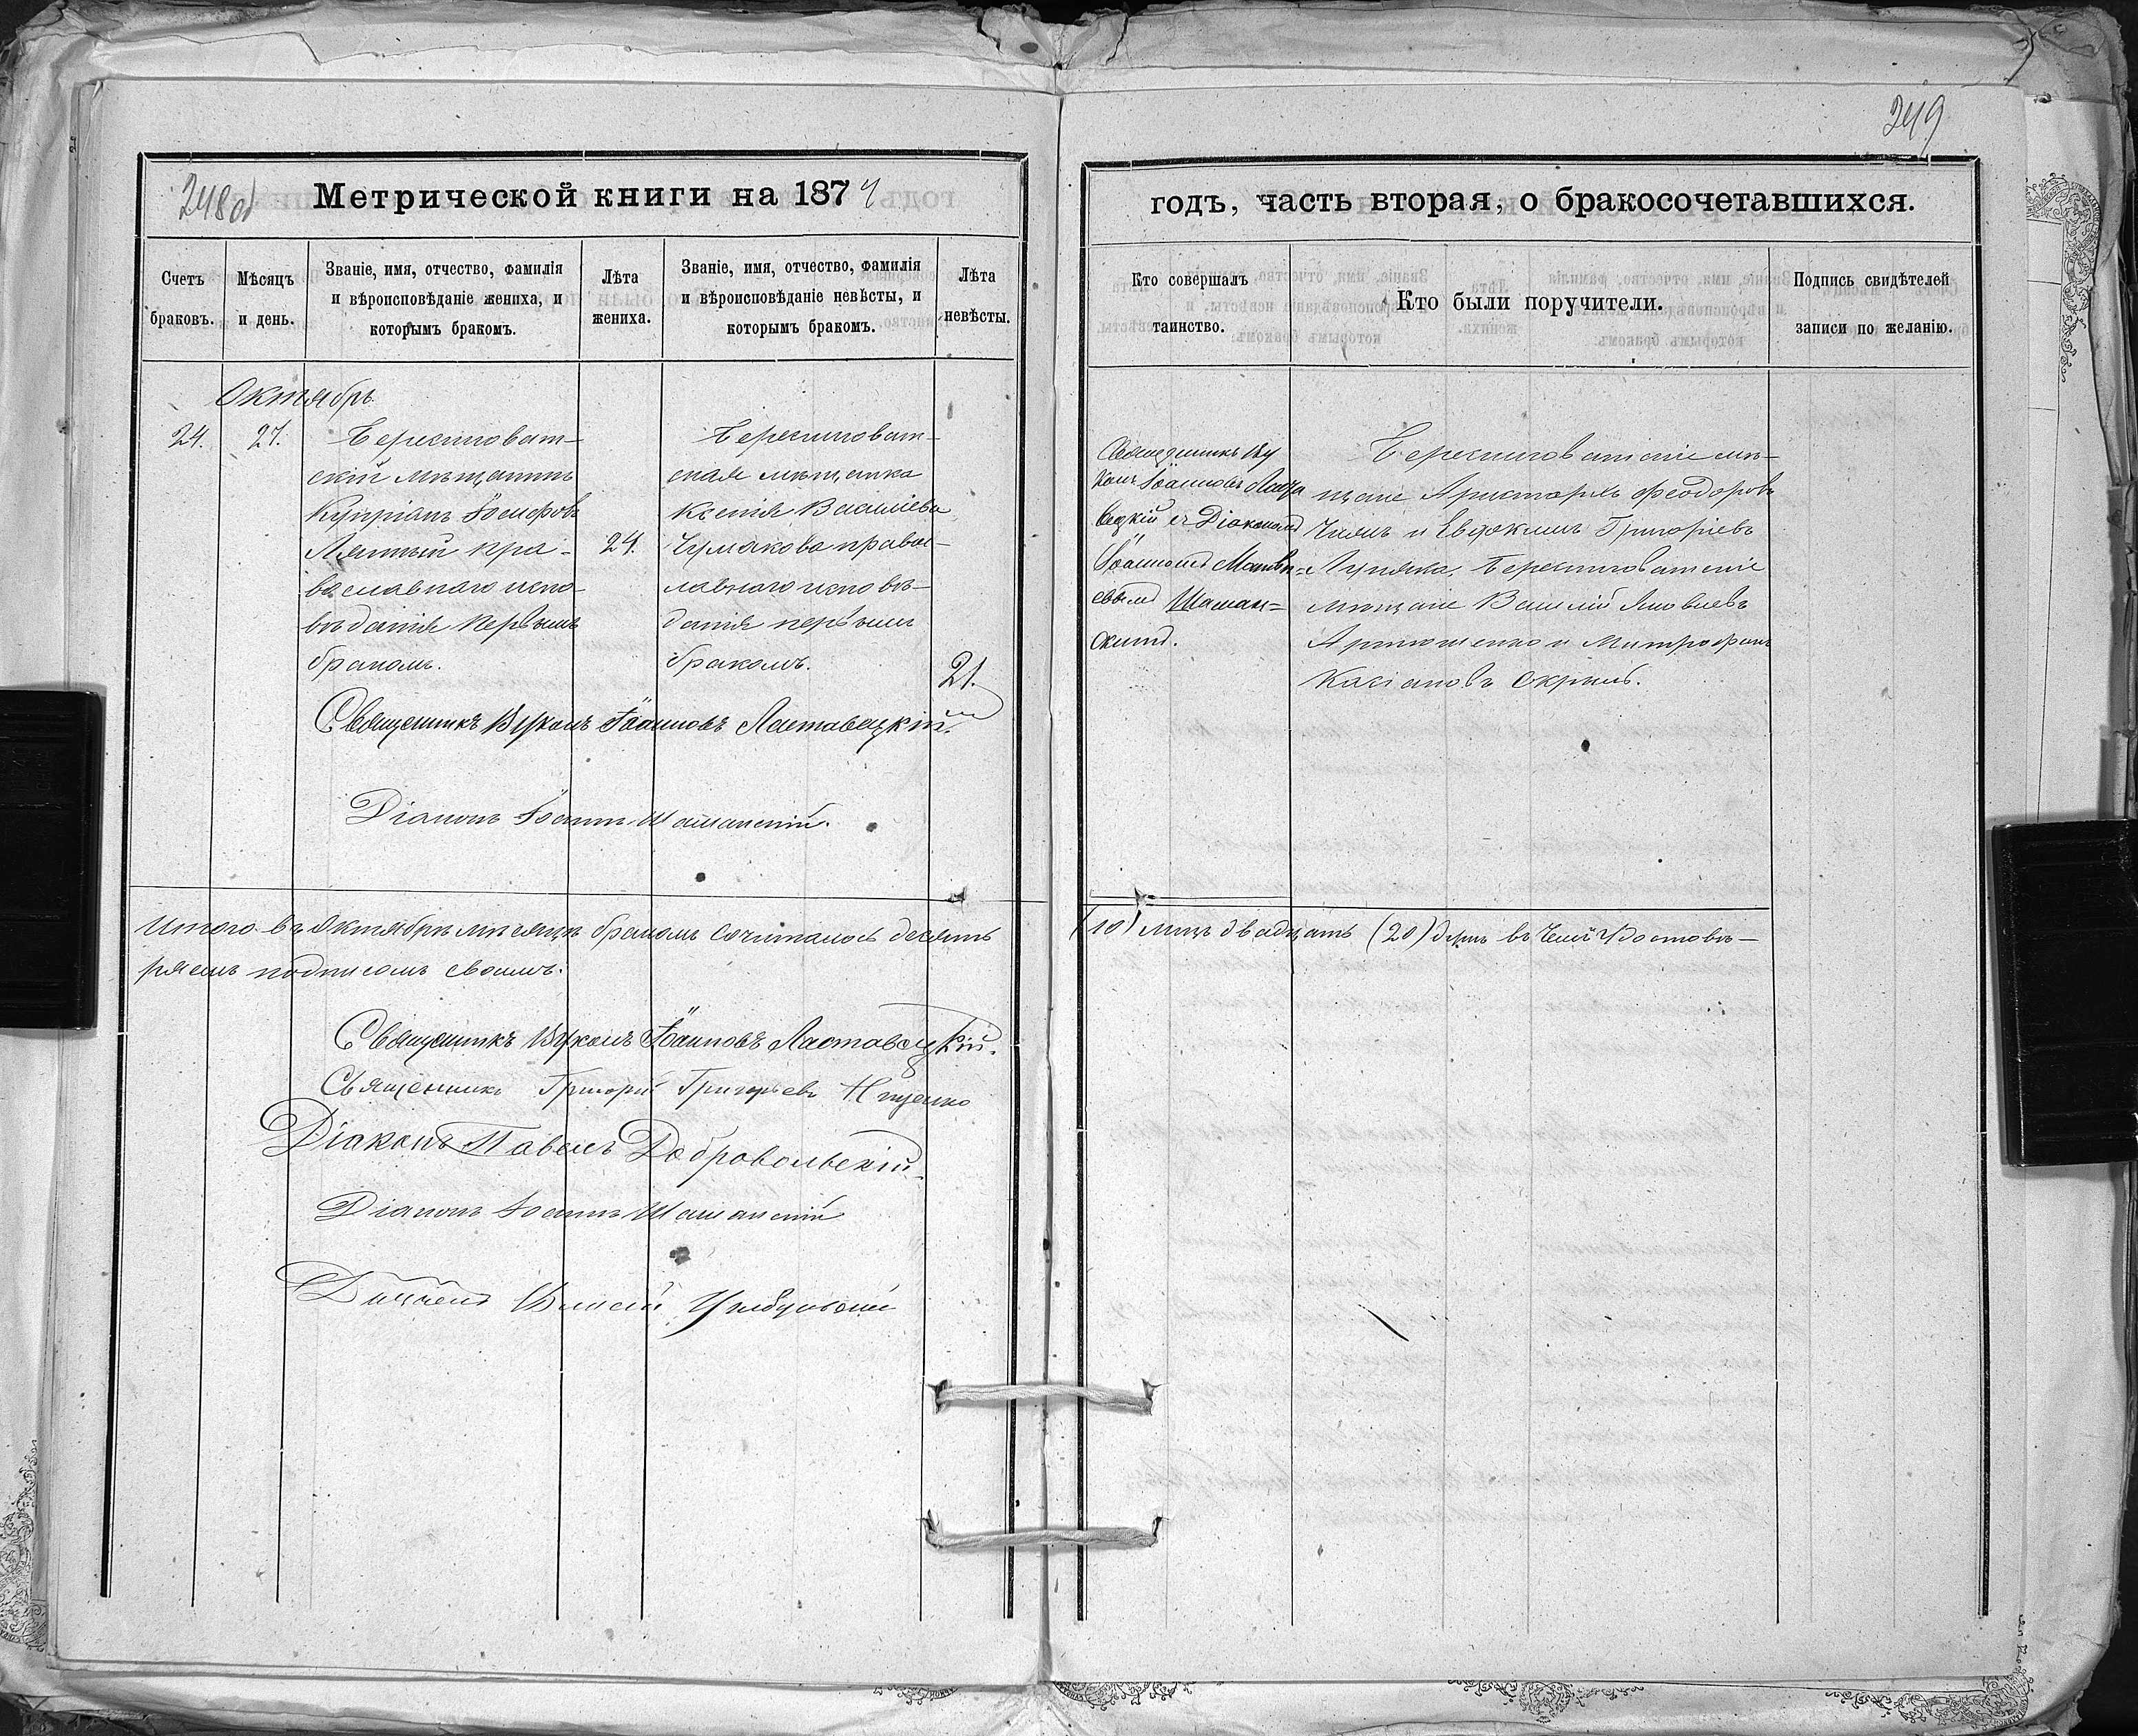 249
248об
Метрической книги на 1874
годъ, часть вторая, о бракосочетавшихся.
Счетъ браковъ.
Мѣсяцъ и день.
Званіе, имя, отчество, фамилія
и вѣроисповѣданіе жениха, и
которымъ бракомъ.
Лѣта
жениха.
Званіе, имя, отчество, фамилія
и вѣроисповѣданіе невѣсты, и
которымъ бракомъ.
Лѣта
невѣсты.
Кто совершалъ
таинство.
Кто были поручители.
Подпись свидѣтелей
записи по желанію.
Октябрь
24.
27.
Берестоват-
скій мѣщанинъ
Купріанъ Іосифовъ
Лятый пра-
вославнаго испо-
вѣданія первымъ
бракомъ.
24.
Берестоват-
ская мѣщанка
Ксенія Василіева
Чумакова правос-
лавнаго исповѣ-
данія первымъ
бракомъ.
21.
Священникъ Ву
колъ Іоанновъ Ласта
вецкій съ Діакономъ
Іоанномъ Матвѣ=
евымъ Шаман=
скимъ.
Берестоватскіе мѣ-
щане Аристархъ Феодоровъ
и Евфокимъ Григоріевъ
Берестоватскіе
мѣщане Василій Яковлевъ
Артюшенко и Митрофанъ
Касіановъ
Священникъ Вуколъ Іоанновъ Ластавецкій.
Діаконъ Іоаннъ Шаманскій.
Итого въ Октябрѣ мѣсяцѣ бракомъ сочиталось десять
(10) лицъ двадцать (20) душъ въ чемъ удостовѣ-
ряемъ подписомъ своимъ.
Священникъ Вуколъ Іоанновъ Ластавецкій.
Священникъ Григорій Григорьевъ Ищенко
Діаконъ Павелъ Добровольскій.
Діаконъ Іоаннъ Шаманскій